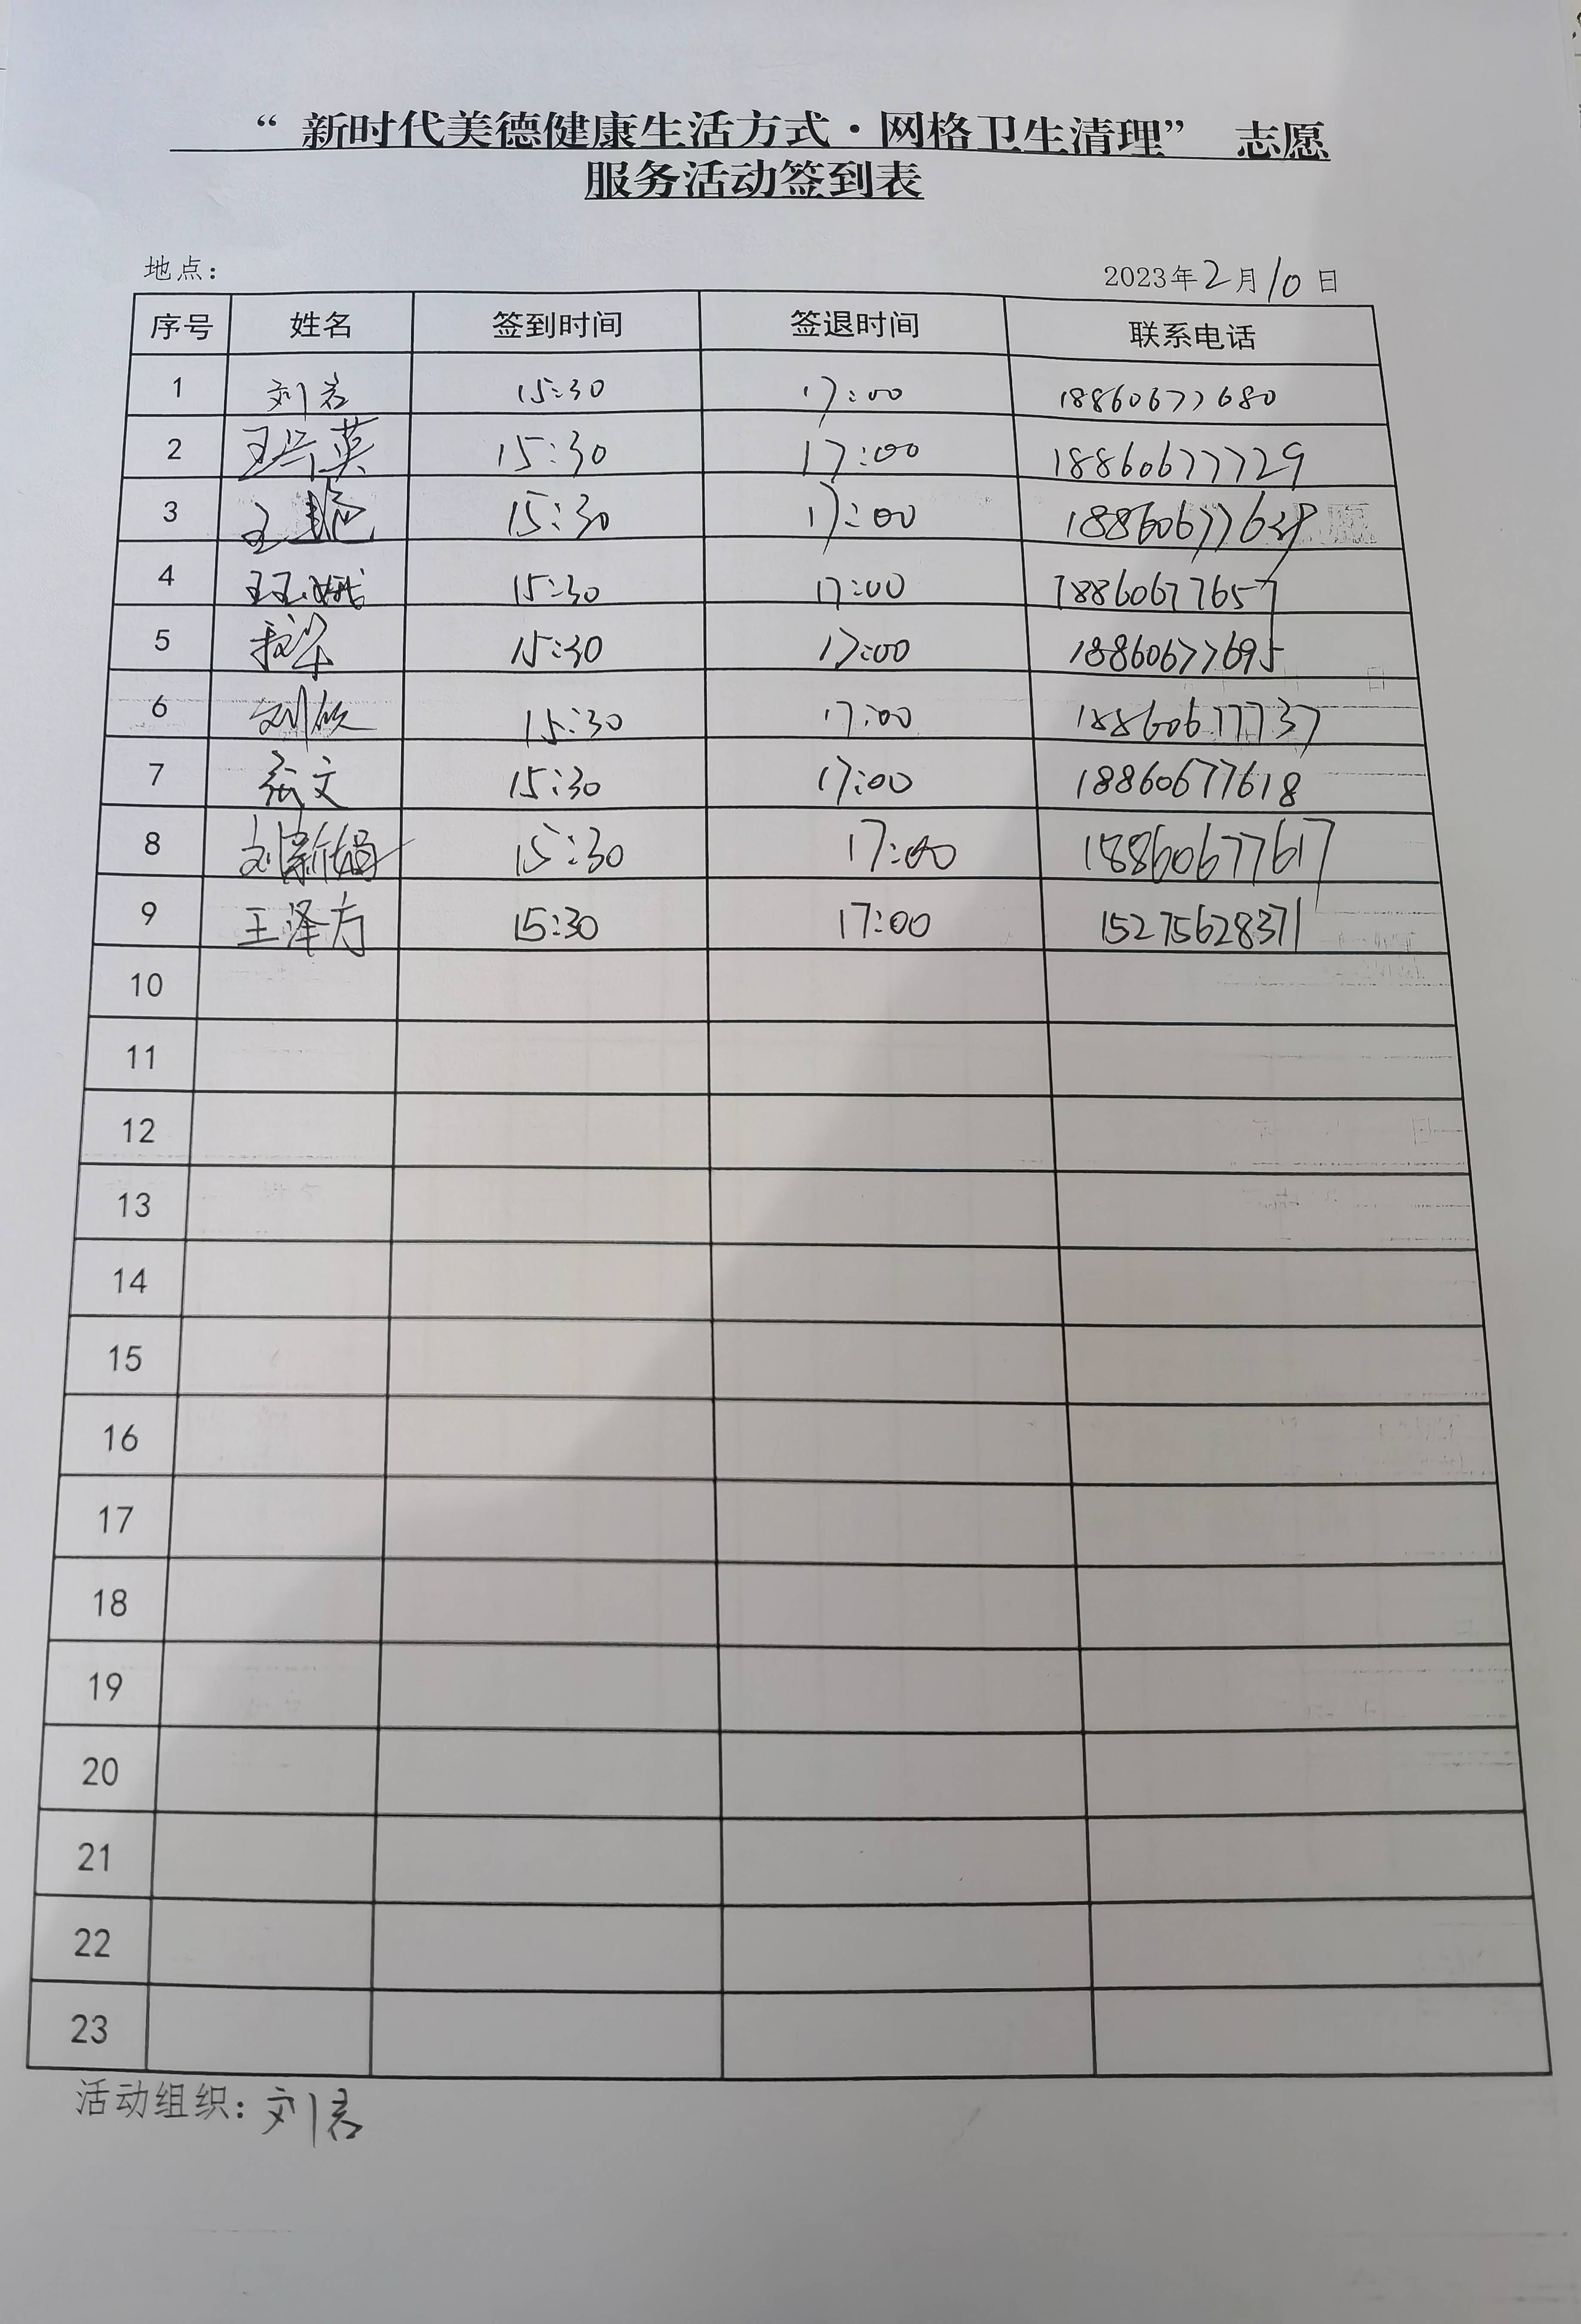 “ 新时代美德健康生活方式·网格卫生清理” 志愿
服务活动签到表
地点：
2023年2月10日
序号 姓名 签到时间 签退时间 联系电话
1 刘君 15:30 17:00 18860677680
2 王兴英 15:30 17:00 18860677729
3 王艳 15:30 17:00
4 王玉娥 15:30 17:00 18860677657
5 15:30 17:00 18860677695
6 刘欣 15:30 17:00 18860677737
7 张文 15:30 17:00 18860677618
8 刘新娟 15:30 17:00 18860677617
9 王泽方 15:30 17:00 15275628371
10
11
12
13
14
15
16
17
18
19
20
21
22
23
活动组织：刘君